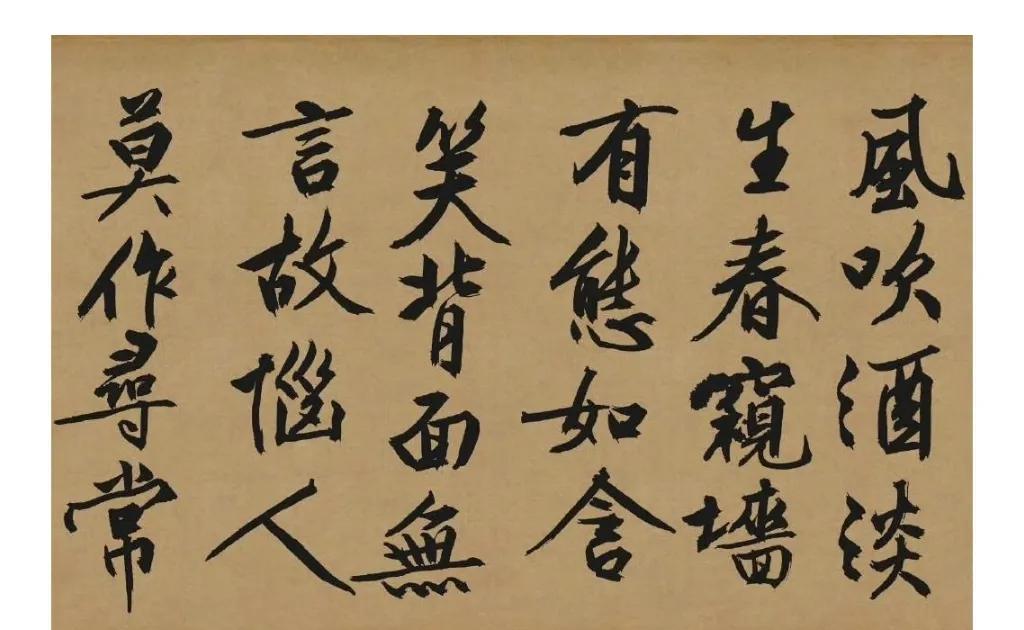 風吹酒淡
生春窺墻
有態如含
笑背面無
言故惱人
莫作尋常